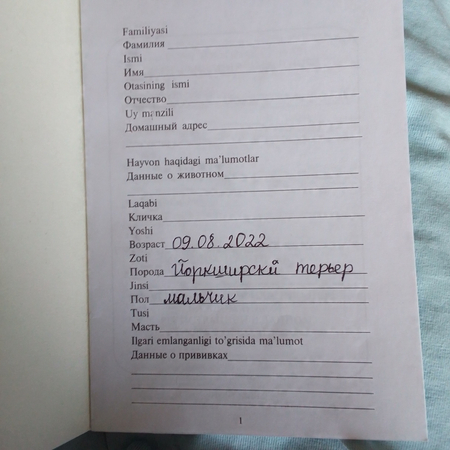 Familiyasi
Фамилия
Ismi
Имя
Otasining ismi
Отчество
Uy manzili
Домашный адрес
Hayvon haqidagi ma'lumotlar
Данные о животном
Laqabi
Кличка
Yoshi
Возраст 09.08.2022
Zoti
Порода Йоркширскй терьер
Jinsi
Пол мальчик
Tusi
Масть
Ilgari emlanganligi to'grisida ma'lumot
Данные о прививках
1